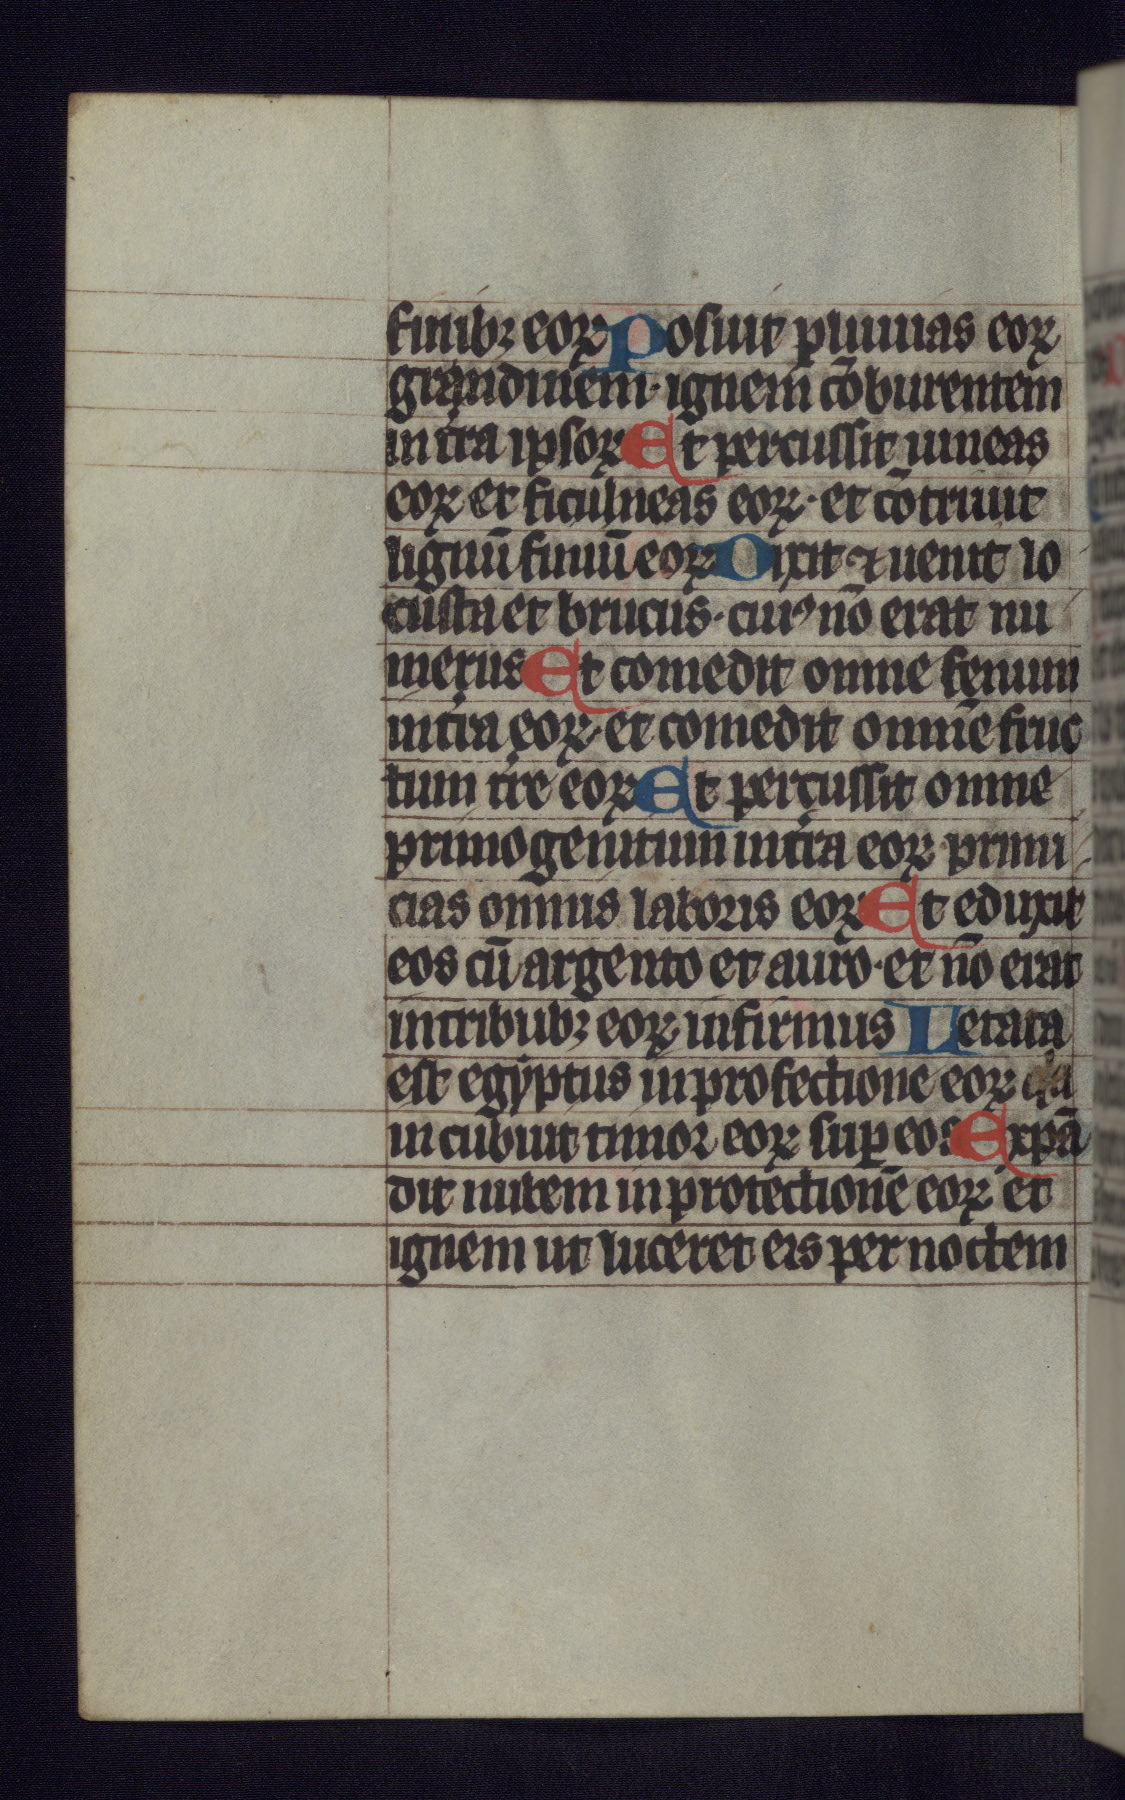 finibꝫ eoꝝ Posuit pluuias eoꝝ
grandinem · ignem cōburentem
in tr̄a ipsoꝝ Et percussit uineas
eoꝝ et ficulneas eoꝝ · et cōtriuit
lignū finiū eoꝝ Dixit ⁊ uenit lo
custa et brucus · cuiꝰ nō erat nu
merus Et comedit omne fenum
in tr̄a eoꝝ · et comedit omnē fruc
tum tr̄e eoꝝ Et percussit omne
primogenitum in tr̄a eoꝝ primi
cias omnis laboris eoꝝ Et eduxit
eos cū argento et auro · et nō erat
in tribubꝫ eoꝝ infirmus Letata
est egyptus in profectione eoꝝ qͥa
incubuit timor eoꝝ suꝑ eos Expā
dit nubem in protectionē eoꝝ et
ignem ut luceret eis per noctem